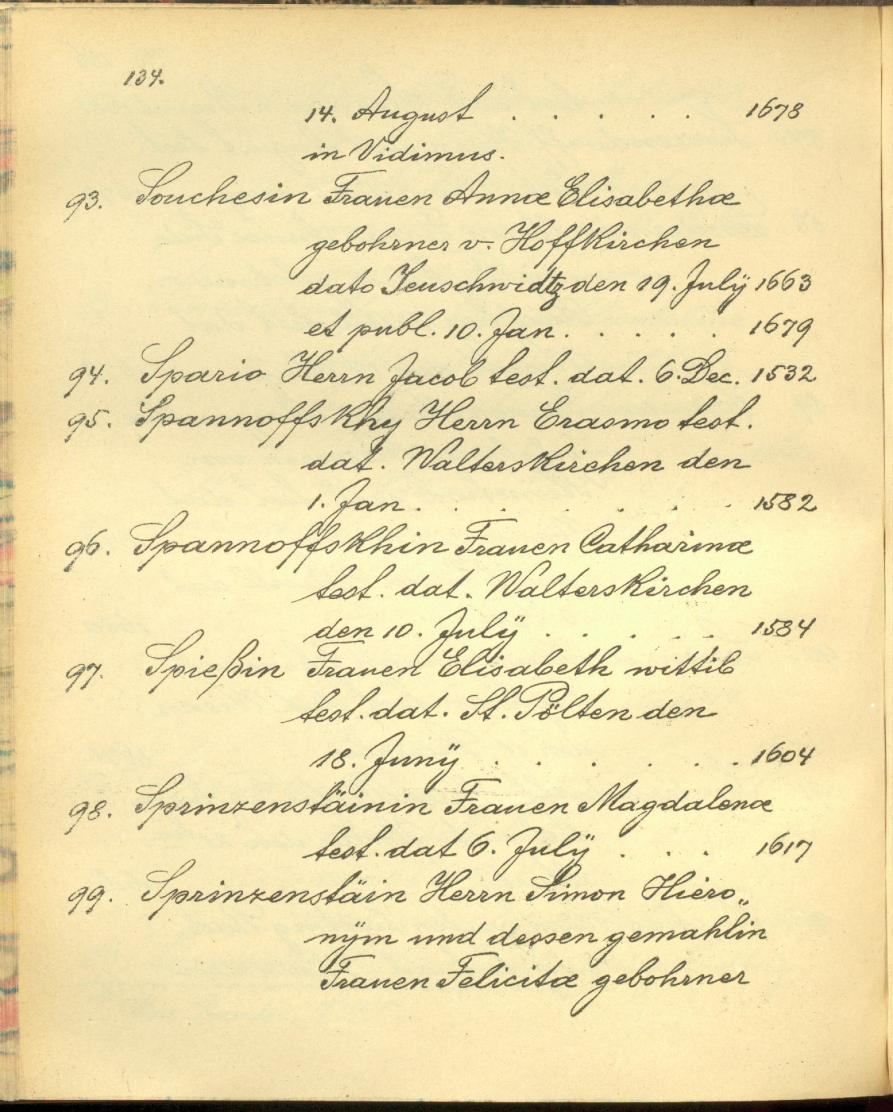 134.
14. August . . . . . 1678
in Vidimus.
93. Souchesin Frauen Annæ Elisabethæ
gebohrner v. Hoffkirchen
dato Jeuschwidtz den 19. Julÿ 1663
et publ. 10. Jan. . . . . . 1679
94. Spario Herrn Jacob test. dat. 6. Dec. 1532
95. Spannoffskhy Herrn Erasmo test.
dat. Walterskirchen den
1. Jan. . . . . . . . 1582
96. Spannoffskhin Frauen Catharinæ
test. dat. Walterskirchen
den 10. Julÿ . . . . . 1584
97. Spießin Frauen Elisabeth wittib
test. dat. St. Pölten den
18. Junÿ . . . . . . . 1604
98. Sprinzenstäinin Frauen Magdalenæ
test. dat 6. Julÿ . . . 1617
99. Sprinzenstäin Herrn Simon Hiero„
nÿm und dessen gemahlin
Frauen Felicitæ gebohrner